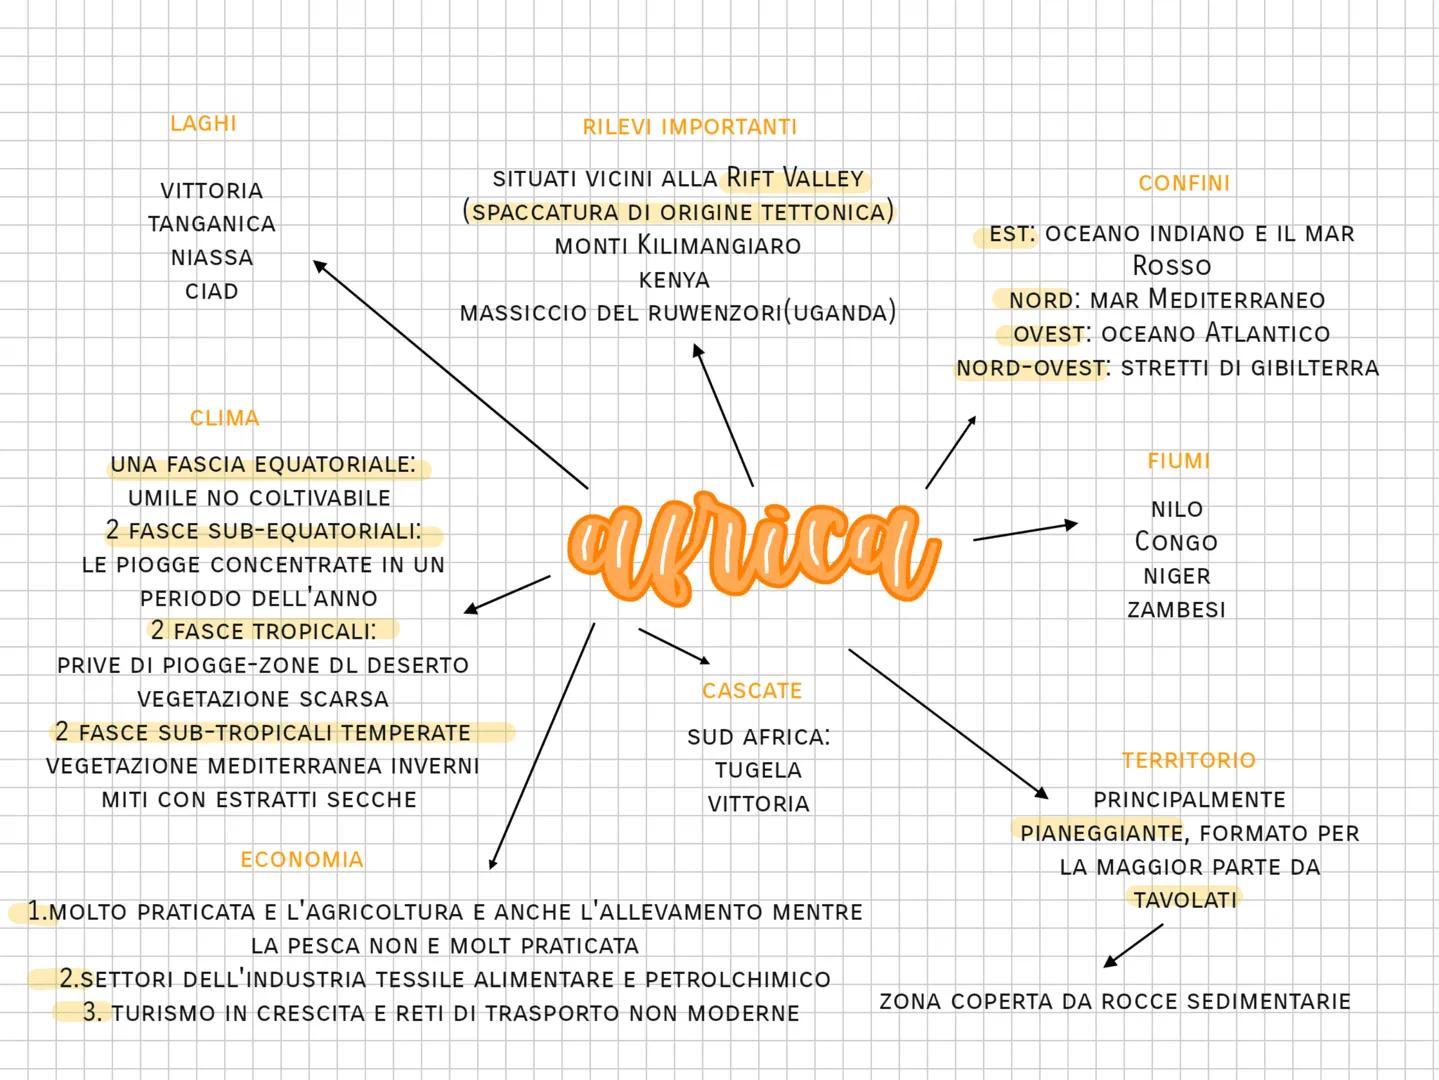 LAGHI
VITTORIA
TANGANICA
NIASSA
CIAD
RILEVI IMPORTANTI
SITUATI VICINI ALLA RIFT VALLEY
(SPACCATURA DI ORIGINE TETTONICA)
MONTI KILIMANGIARO
KENYA
MASSICCIO DEL RUWENZORI(UGANDA)
CONFINI
EST: OCEANO INDIANO E IL MAR
ROSSO
NORD: MAR MEDITERRANEO
OVEST: OCEANO ATLANTICO
NORD-OVEST: STRETTI DI GIBILTERRA
CLIMA
UNA FASCIA EQUATORIALE:
UMILE NO COLTIVABILE
2 FASCE SUB-EQUATORIALI:
LE PIOGGE CONCENTRATE IN UN
PERIODO DELL'ANNO
2 FASCE TROPICALI:
PRIVE DI PIOGGE-ZONE DL DESERTO
VEGETAZIONE SCARSA
2 FASCE SUB-TROPICALI TEMPERATE
VEGETAZIONE MEDITERRANEA INVERNI
MITI CON ESTRATTI SECCHE
africa
FIUMI
NILO
CONGO
NIGER
ZAMBESI
CASCATE
SUD AFRICA:
TUGELA
VITTORIA
TERRITORIO
PRINCIPALMENTE
PIANEGGIANTE, FORMATO PER
LA MAGGIOR PARTE DA
TAVOLATI
ZONA COPERTA DA ROCCE SEDIMENTARIE
ECONOMIA
1.MOLTO PRATICATA E L'AGRICOLTURA E ANCHE L'ALLEVAMENTO MENTRE
LA PESCA NON E MOLT PRATICATA
2.SETTORI DELL'INDUSTRIA TESSILE ALIMENTARE E PETROLCHIMICO
3. TURISMO IN CRESCITA E RETI DI TRASPORTO NON MODERNE